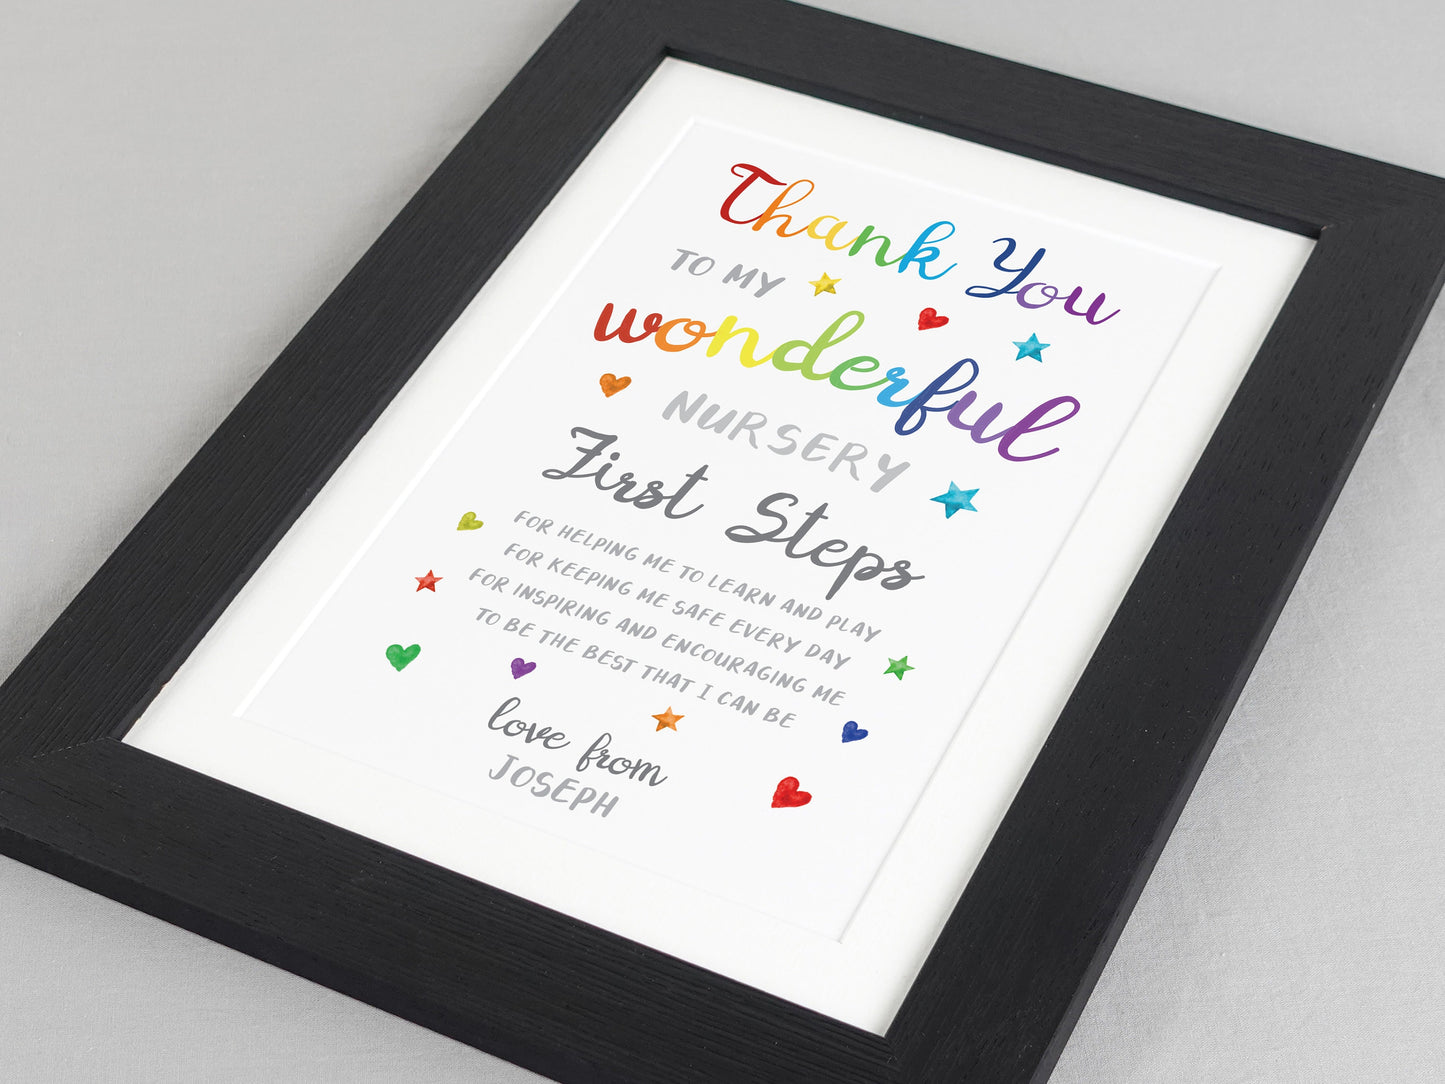 Thank You
TO MY
wonderful
NURSERY
First Steps
FOR HELPING ME TO LEARN AND PLAY
FOR KEEPING ME SAFE EVERY DAY
FOR INSPIRING AND ENCOURAGING ME
TO BE THE BEST THAT I CAN BE
love from
JOSEPH